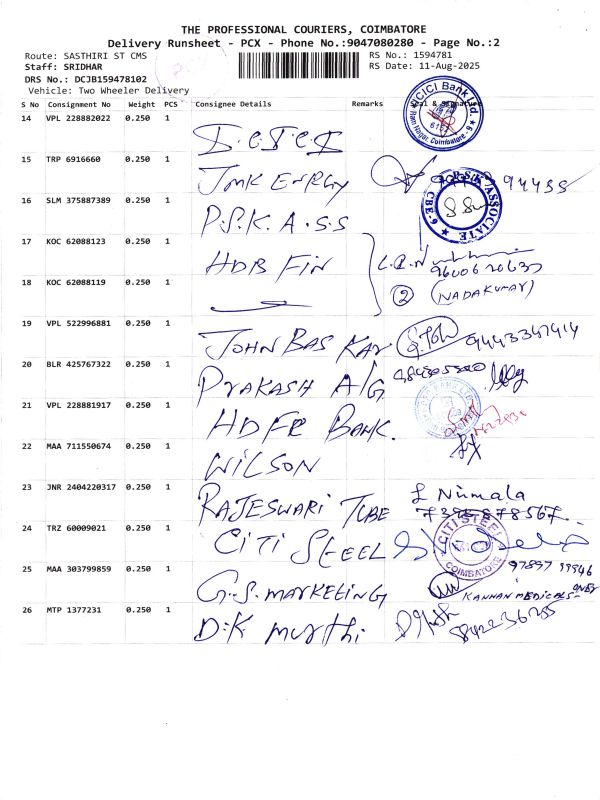 THE PROFESSIONAL COURIERS, COIMBATORE
Delivery Runsheet - PCX - Phone No.:9047080280 - Page No.:2
Route: SASTHIRI ST CMS
RS No.: 1594781
Staff: SRIDHAR
RS Date: 11-Aug-2025
DRS No.: DCJB159478102
Vehicle: Two Wheeler Delivery
S No Consignment No Weight PCS Consignee Details Remarks Seal & Signature
14 VPL 228882022 0.250 1
ICICI Bank Ltd.
Ram Nagar, Coimbatore
15 TRP 6916660 0.250 1 JMK ENERGY 94435
16 SLM 375887389 0.250 1 P.S.K.A.S.S
ASSOCIATE
CBE-6
17 KOC 62088123 0.250 1 HDB FIN
18 KOC 62088119 0.250 1 2 (NADAKUMAR)
19 VPL 522996881 0.250 1 JOHN BAS KAR 9443347414
20 BLR 425767322 0.250 1 PRAKASH A/G
21 VPL 228881917 0.250 1 HDFC BANK.
22 MAA 711550674 0.250 1 WILSON
23 JNR 2404220317 0.250 1 RAJESWARI TUBE Nirmala
7395878567
24 TRZ 60009021 0.250 1 CITI STEEL
CITI STEEL
COIMBATORE
25 MAA 303799859 0.250 1 G.S. MARKETING
KANNAN MEDICALS
26 MTP 1377231 0.250 1 D.K murthi